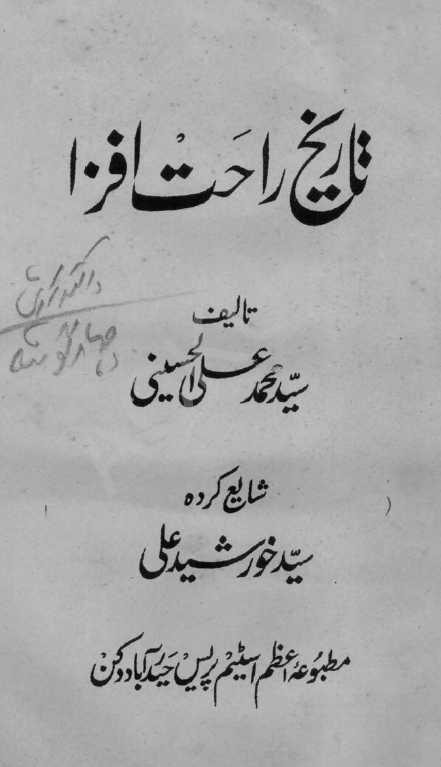 تاریخ راحَتْ افزا
تالیف
سیّد محمد علی الحسینی
شایع کرده
سیّد خورشید علی
مطبُوعۂ اعظم اسٹیم پریس حَیدرآباد دکن